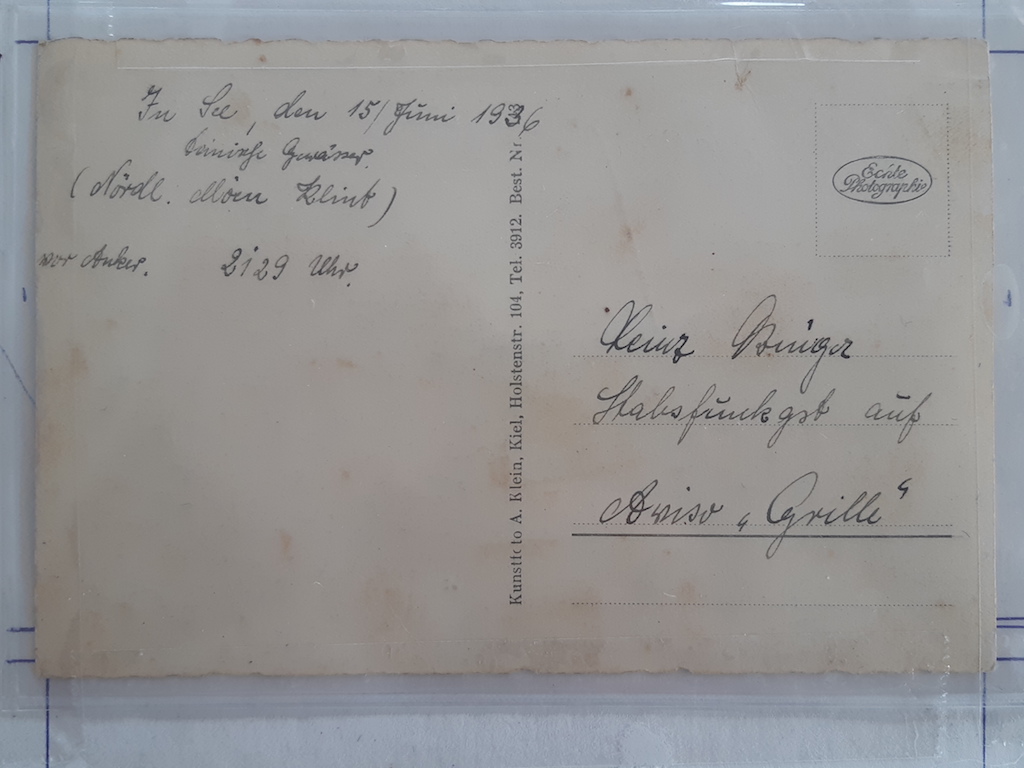 In See, den 15/Juni 1936
Dänische Gewässer.
(Nördl. Möen Klint)
vor Anker. 2129 Uhr.
Kunstfoto A. Klein, Kiel, Holstenstr. 104, Tel. 3912. Best. Nr.
Echte
Photographie
Heinz
Stabsfunkgst auf
Aviso „Grille“